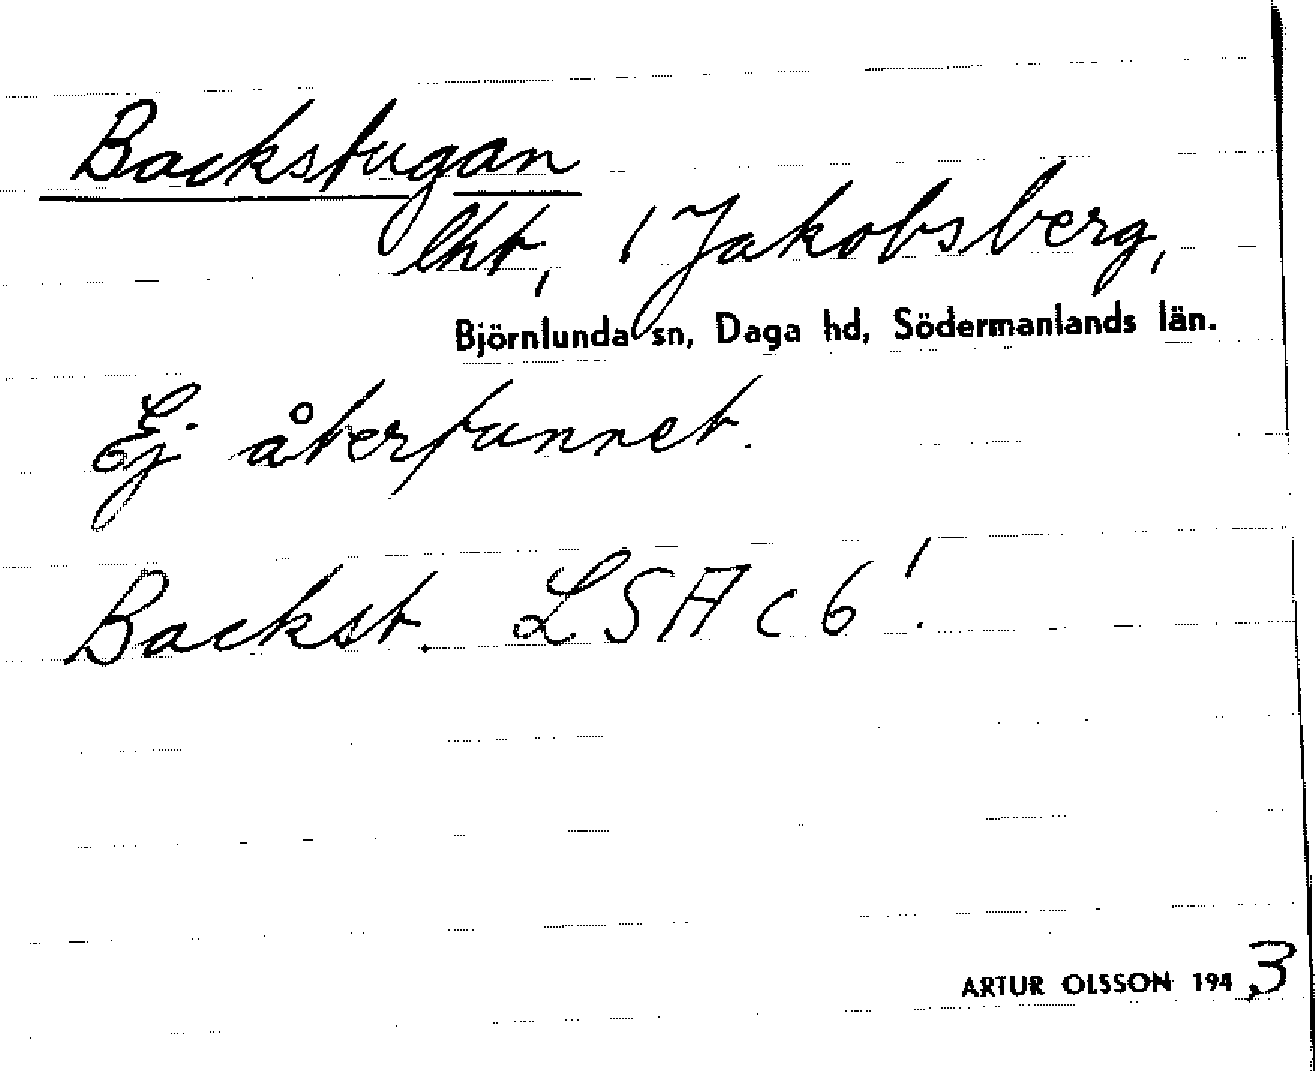 Backstugan
lht, / Jakobsberg,
Björnlunda sn, Daga hd, Södermanlands län.
Ej återfunnet.
Backst. LSA c 6!
ARTUR OLSSON 1943